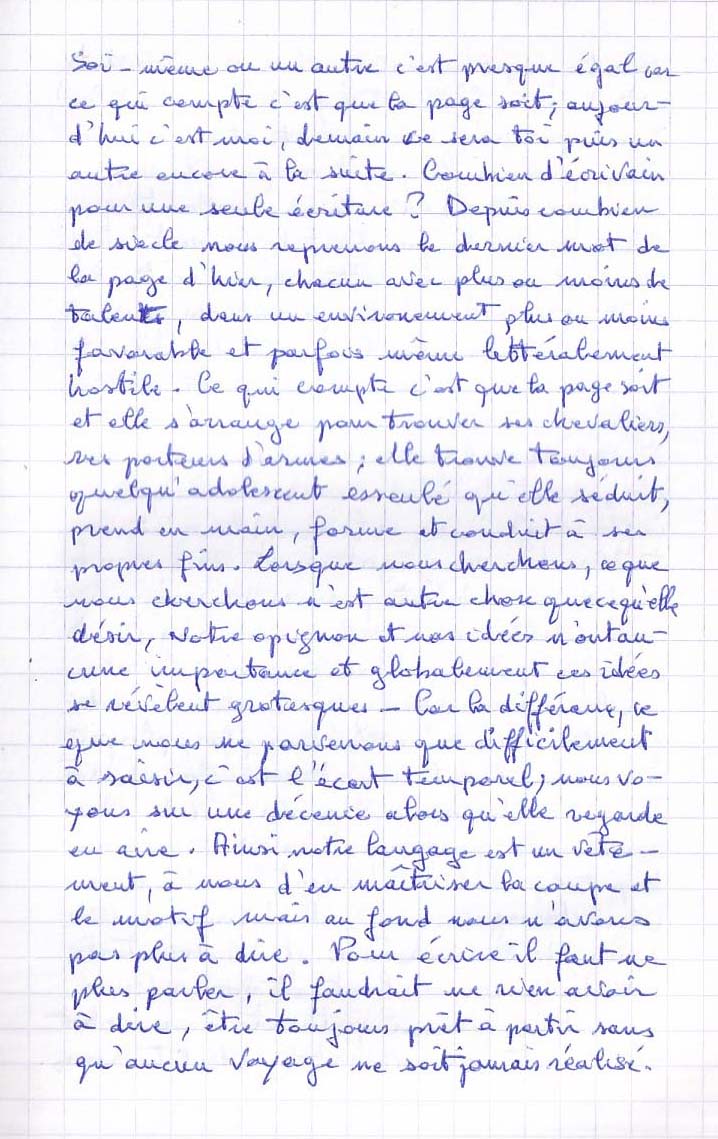 Soi-même ou un autre c'est presque égal car
ce qui compte c'est que la page soit; aujour-
d'hui c'est moi, demain ce sera toi puis un
autre encore à la suite. Combien d'écrivain
pour une seule écriture ? Depuis combien
de siècle nous reprenons le dernier mot de
la page d'hier, chacun avec plus ou moins de
talent, dans un environement plus ou moins
favorable et parfois même littéralement
hostile. Ce qui compte c'est que la page soit
et elle s'arrange pour trouver ses chevaliers,
ses porteurs d'armes; elle trouve toujours
quelqu'adolescent esseulé qu'elle séduit,
prend en main, forme et conduit à ses
propres fins. Lorsque nous cherchons, ce que
nous cherchons n'est autre chose que ce qu'elle
désir, Notre opignon et nos idées n'ont au-
cune importance et globalement ces idées
se révèlent grotesques - Car la différence, ce
que nous ne parvenons que difficilement
à saisir, c'est l'écart temporel; nous vo-
yons sur une décenie alors qu'elle regarde
en aire. Ainsi notre langage est un vête-
ment, à nous d'en maîtriser la coupe et
le motif mais au fond nous n'avons
pas plus à dire. Pour écrire il faut ne
plus parler, il faudrait ne rien avoir
à dire, être toujours prêt à partir sans
qu'aucun voyage ne soit jamais réalisé.